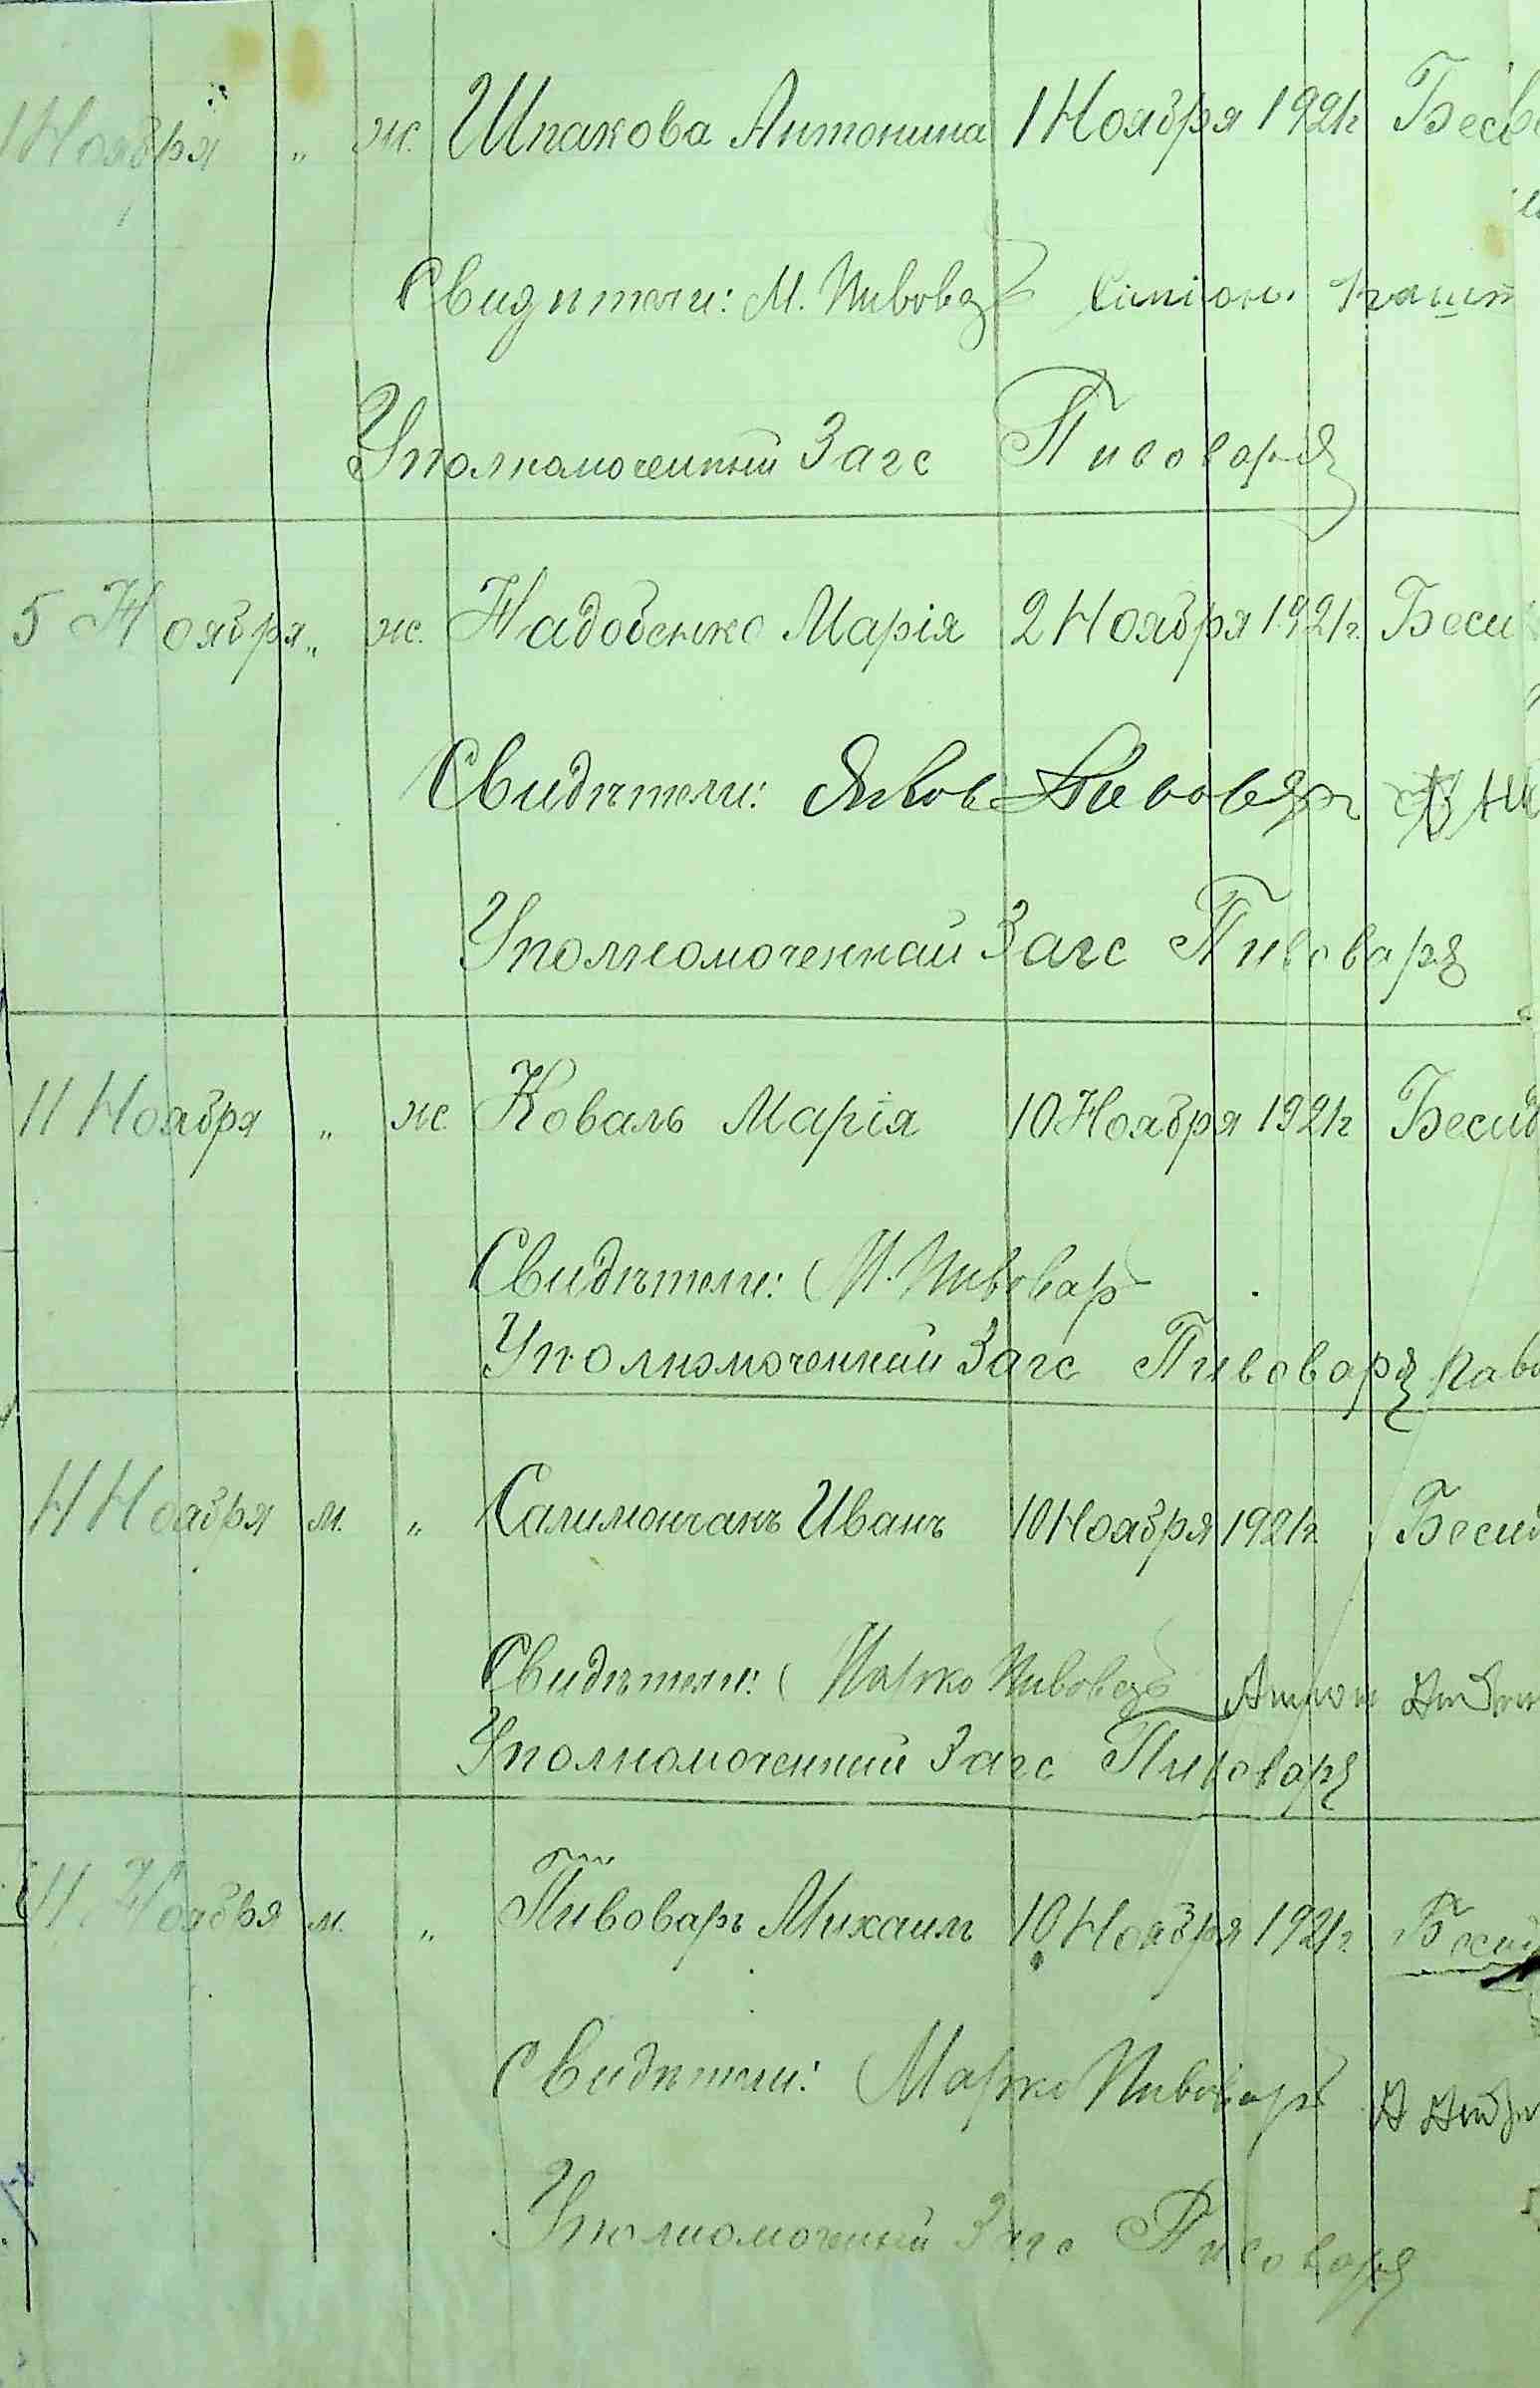 1 Ноября " ж. Шпакова Антонина 1 Ноября 1921г
Свидѣтели: М. Пивовар
Уполномоченный Загс Пивоваръ
5 Ноября " ж. Надобенко Марія 2 Ноября 1921г.
Свидѣтели: Яков Пивовар
Уполномоченный Загс Пивоваръ
11 Ноября " ж. Коваль Марія 10 Ноября 1921г
Свидѣтели: М. Пивовар
Уполномоченный Загс Пивоваръ
11 Ноября м. " Салимончанъ Иванъ 10 Ноября 1921г.
Свидѣтели: Марко Пивовар Антон
Уполномоченный Загс Пивоваръ
11 Ноября м. " Пивоваръ Михаилъ 10 Ноября 1921г.
Свидѣтели: Марко Пивовар
Уполномоченый Загс Пивоваръ